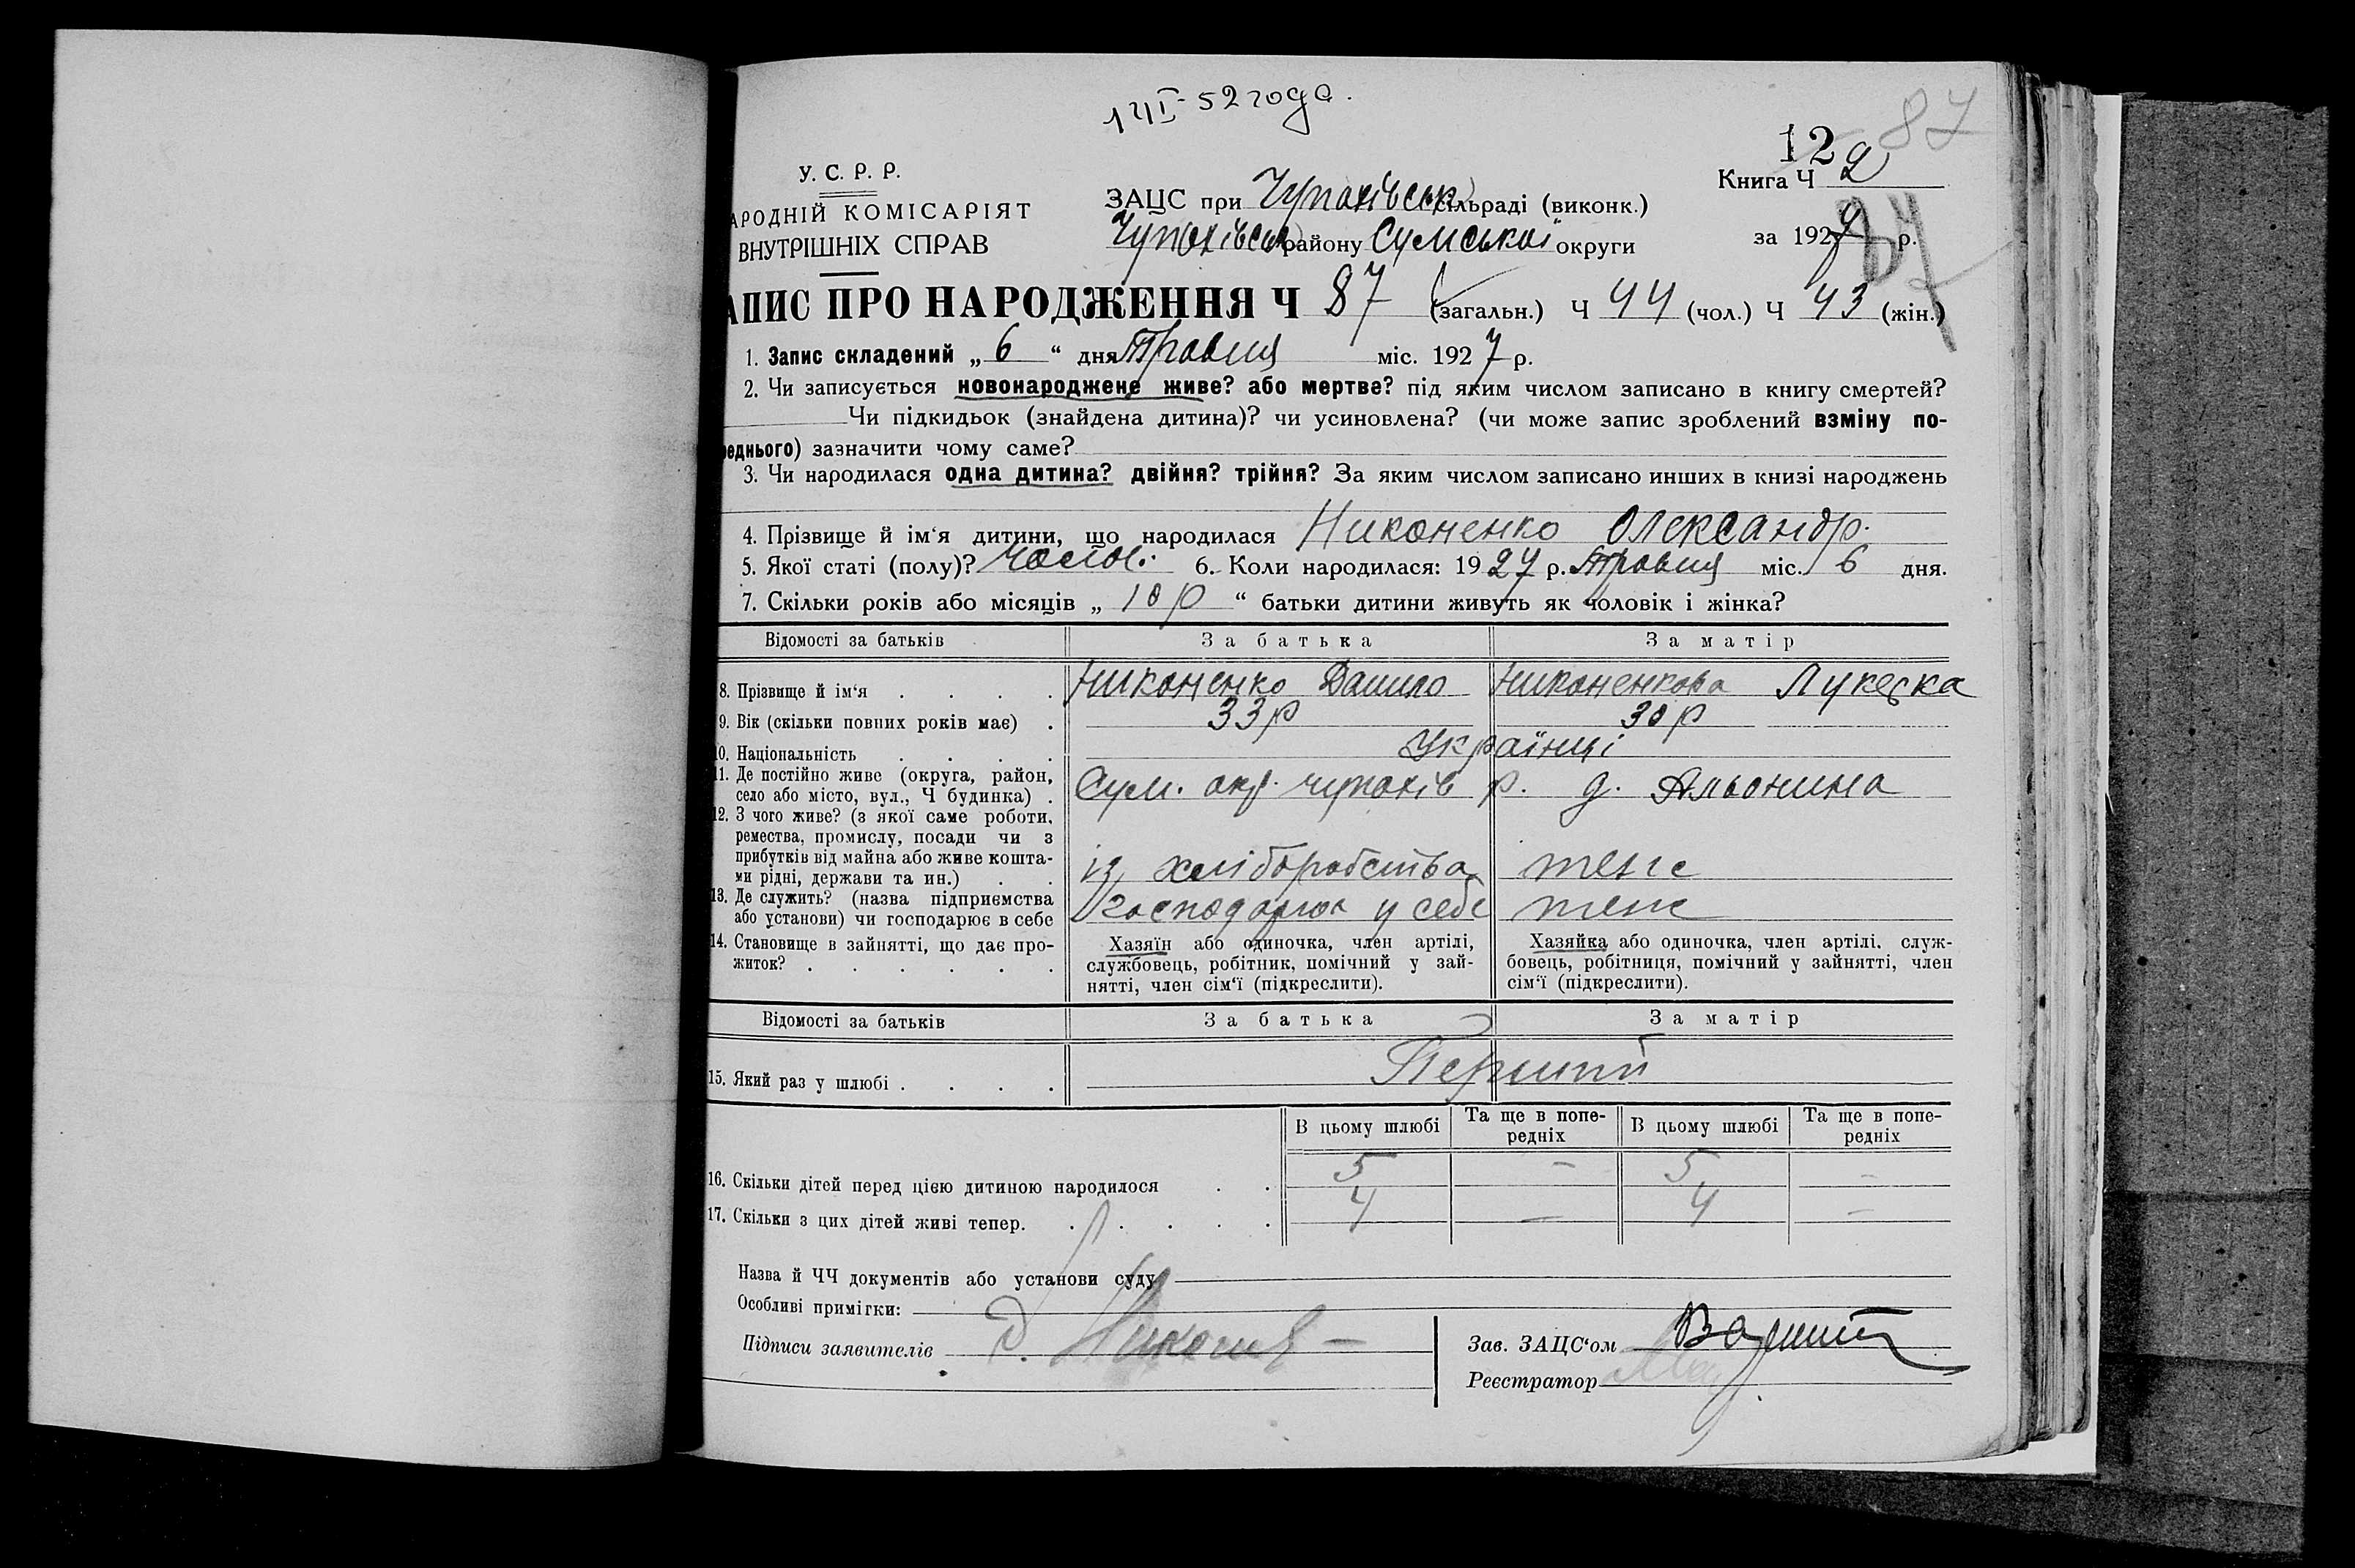 14 I - 52 года.
12 87
У. С. Р. Р.
АРОДНІЙ КОМІСАРІЯТ
ВНУТРІШНІХ СПРАВ
ЗАЦС при Чупахівськ сільраді (виконк.)
Чупахівськ району Сумської округи
Книга Ч 2
за 1927 р.
87
АПИС ПРО НАРОДЖЕННЯ Ч 87 (загальн.) Ч 44 (чол.) Ч 43 (жін.)
1. Запис складений „ 6 “ дня Травня міс. 1927 р.
2. Чи записується новонароджене живе? або мертве? під яким числом записано в книгу смертей?
Чи підкидьок (знайдена дитина)? чи усиновлена? (чи може запис зроблений взміну по-
реднього) зазначити чому саме?
3. Чи народилася одна дитина? двійня? трійня? За яким числом записано инших в книзі народжень
4. Прізвище й ім‘я дитини, що народилася Никоненко Олександр.
5. Якої статі (полу)? чолов. 6. Коли народилася: 1927 р. Травня міс. 6 дня.
7. Скільки років або місяців „ 10 р “ батьки дитини живуть як чоловік і жінка?
Відомості за батьків За батька За матір
8. Прізвище й ім‘я . . . . Никоненко Данило Никоненкова Лукерка
9. Вік (скільки повних років має) . 33 р 30 р
10. Національність . . . . Українці
11. Де постійно живе (округа, район,
село або місто, вул., Ч будинка) . Сум. окр. чупахів р. д. Альонина
12. З чого живе? (з якої саме роботи,
ремества, промислу, посади чи з
прибутків від майна або живе кошта-
ми рідні, держави та ин.) . . із хліборобства теж
13. Де служить? (назва підприємства
або установи) чи господарює в себе господарює у себе теж
14. Становище в зайнятті, що дає про-
житок? . . . . . .
Хазяїн або одиночка, член артілі,
службовець, робітник, помічний у зай-
нятті, член сім‘ї (підкреслити).
Хазяйка або одиночка, член артілі. служ-
бовець, робітниця, помічний у зайнятті, член
сім‘ї (підкреслити).
Відомості за батьків За батька За матір
15. Який раз у шлюбі . . . . Перший
В цьому шлюбі Та ще в попе-
редніх В цьому шлюбі Та ще в попе-
редніх
16. Скільки дітей перед цією дитиною народилося . . 5 – 5 –
17. Скільки з цих дітей живі тепер. . . . . . 4 – 4 –
Назва й ЧЧ документів або установи суду
Особливі примігки:
Підписи заявителів Д. Никонен
Зав. ЗАЦС‘ом
Реєстратор